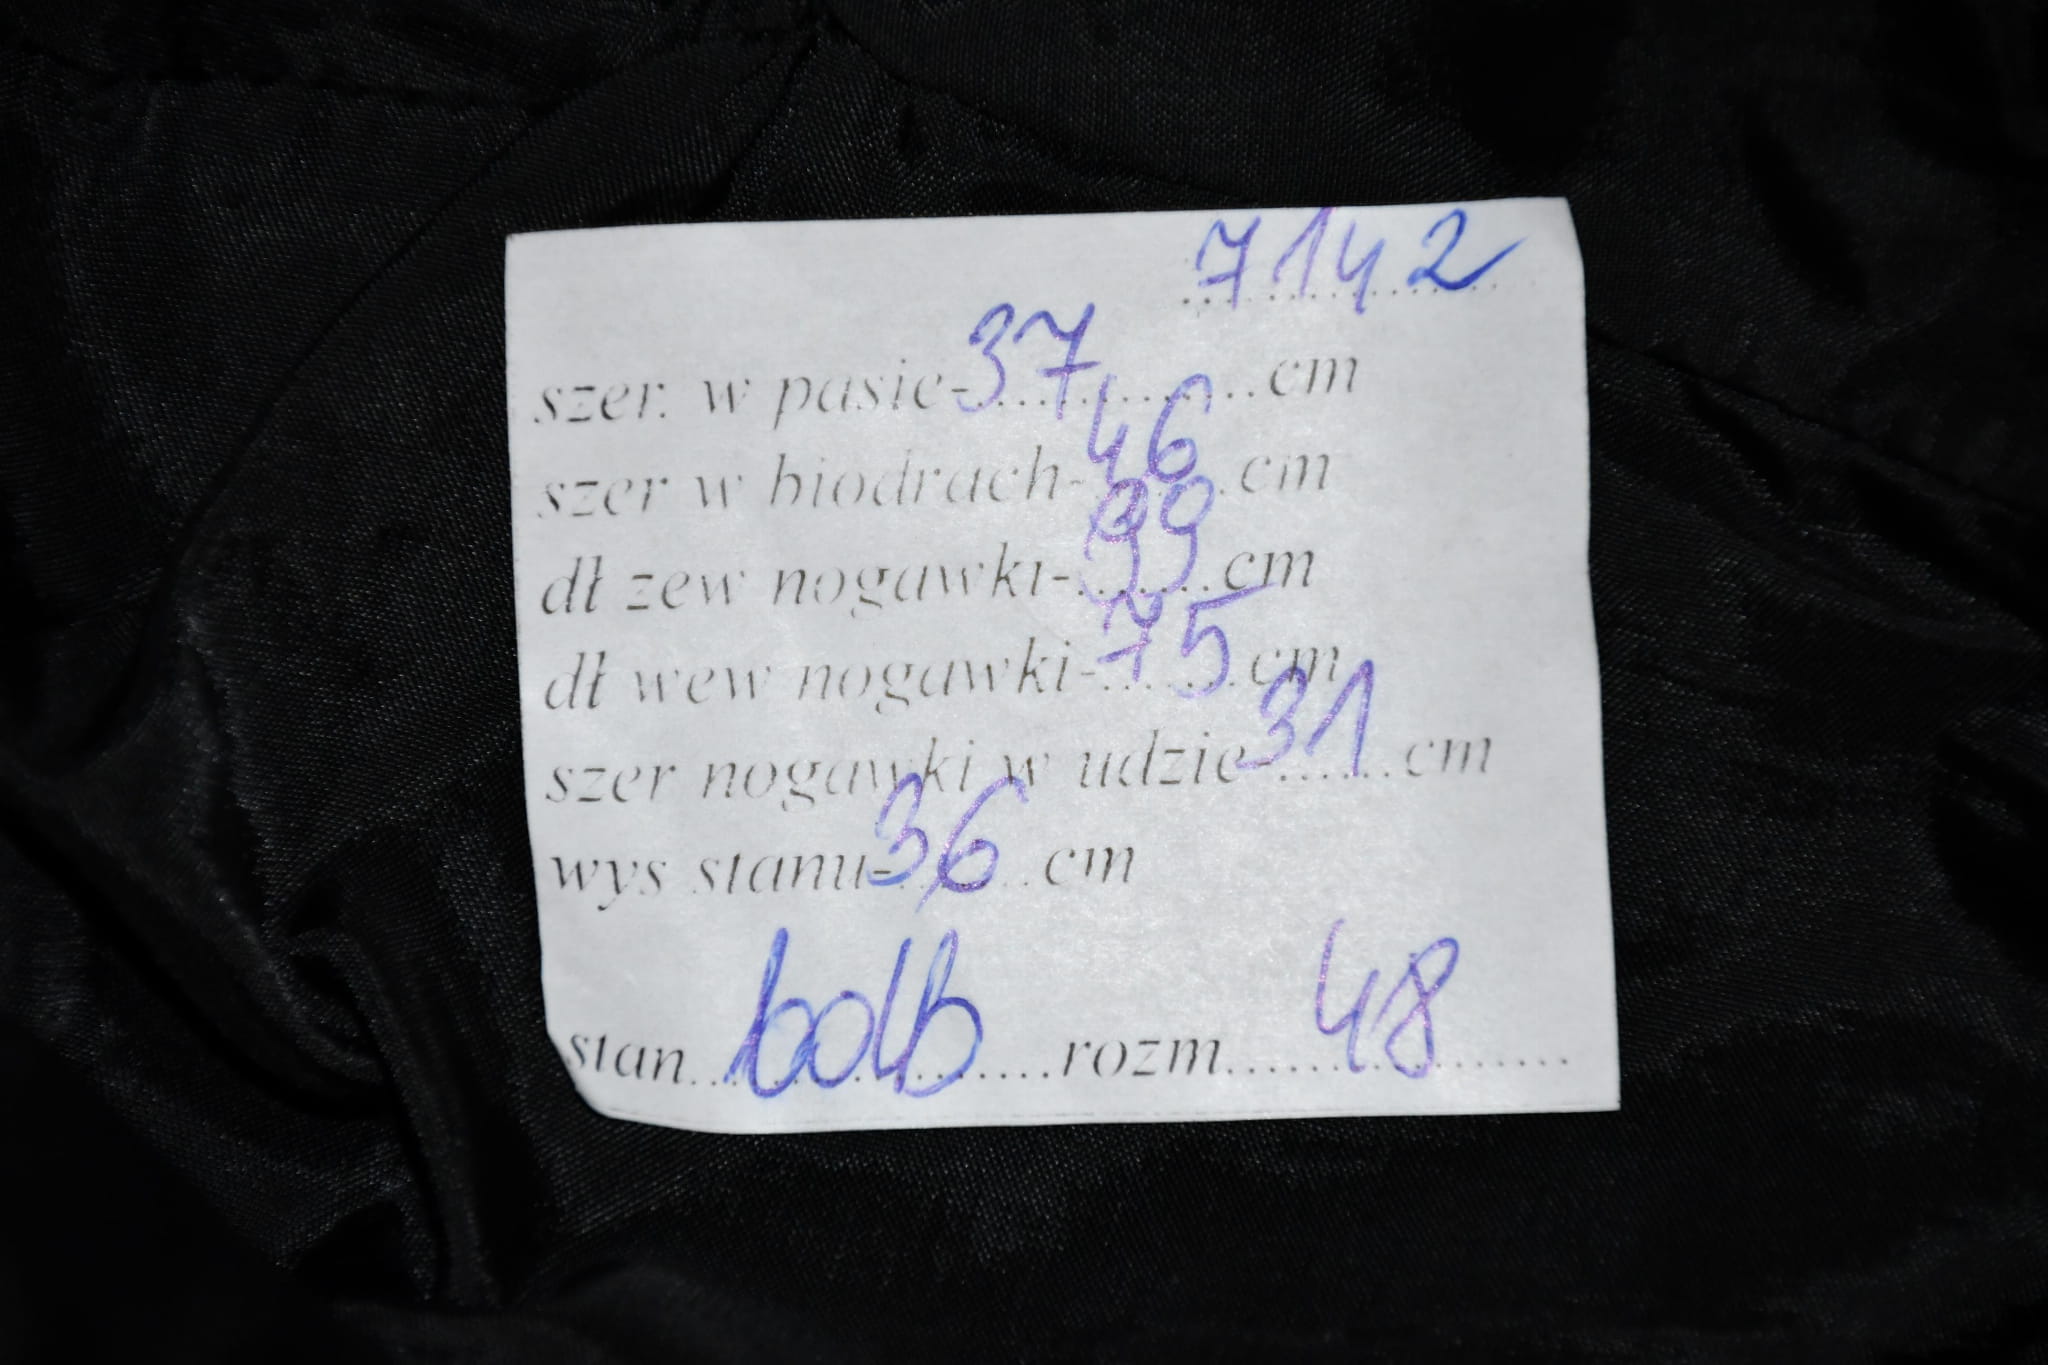 7142
szer. w pasie-37..............cm
szer w biodrach-46.....cm
dł zew nogawki-99.......cm
dł wew nogawki-75.......cm
szer nogawki w udzie-31......cm
wys stanu-36......cm
stan.................rozm.....48..........